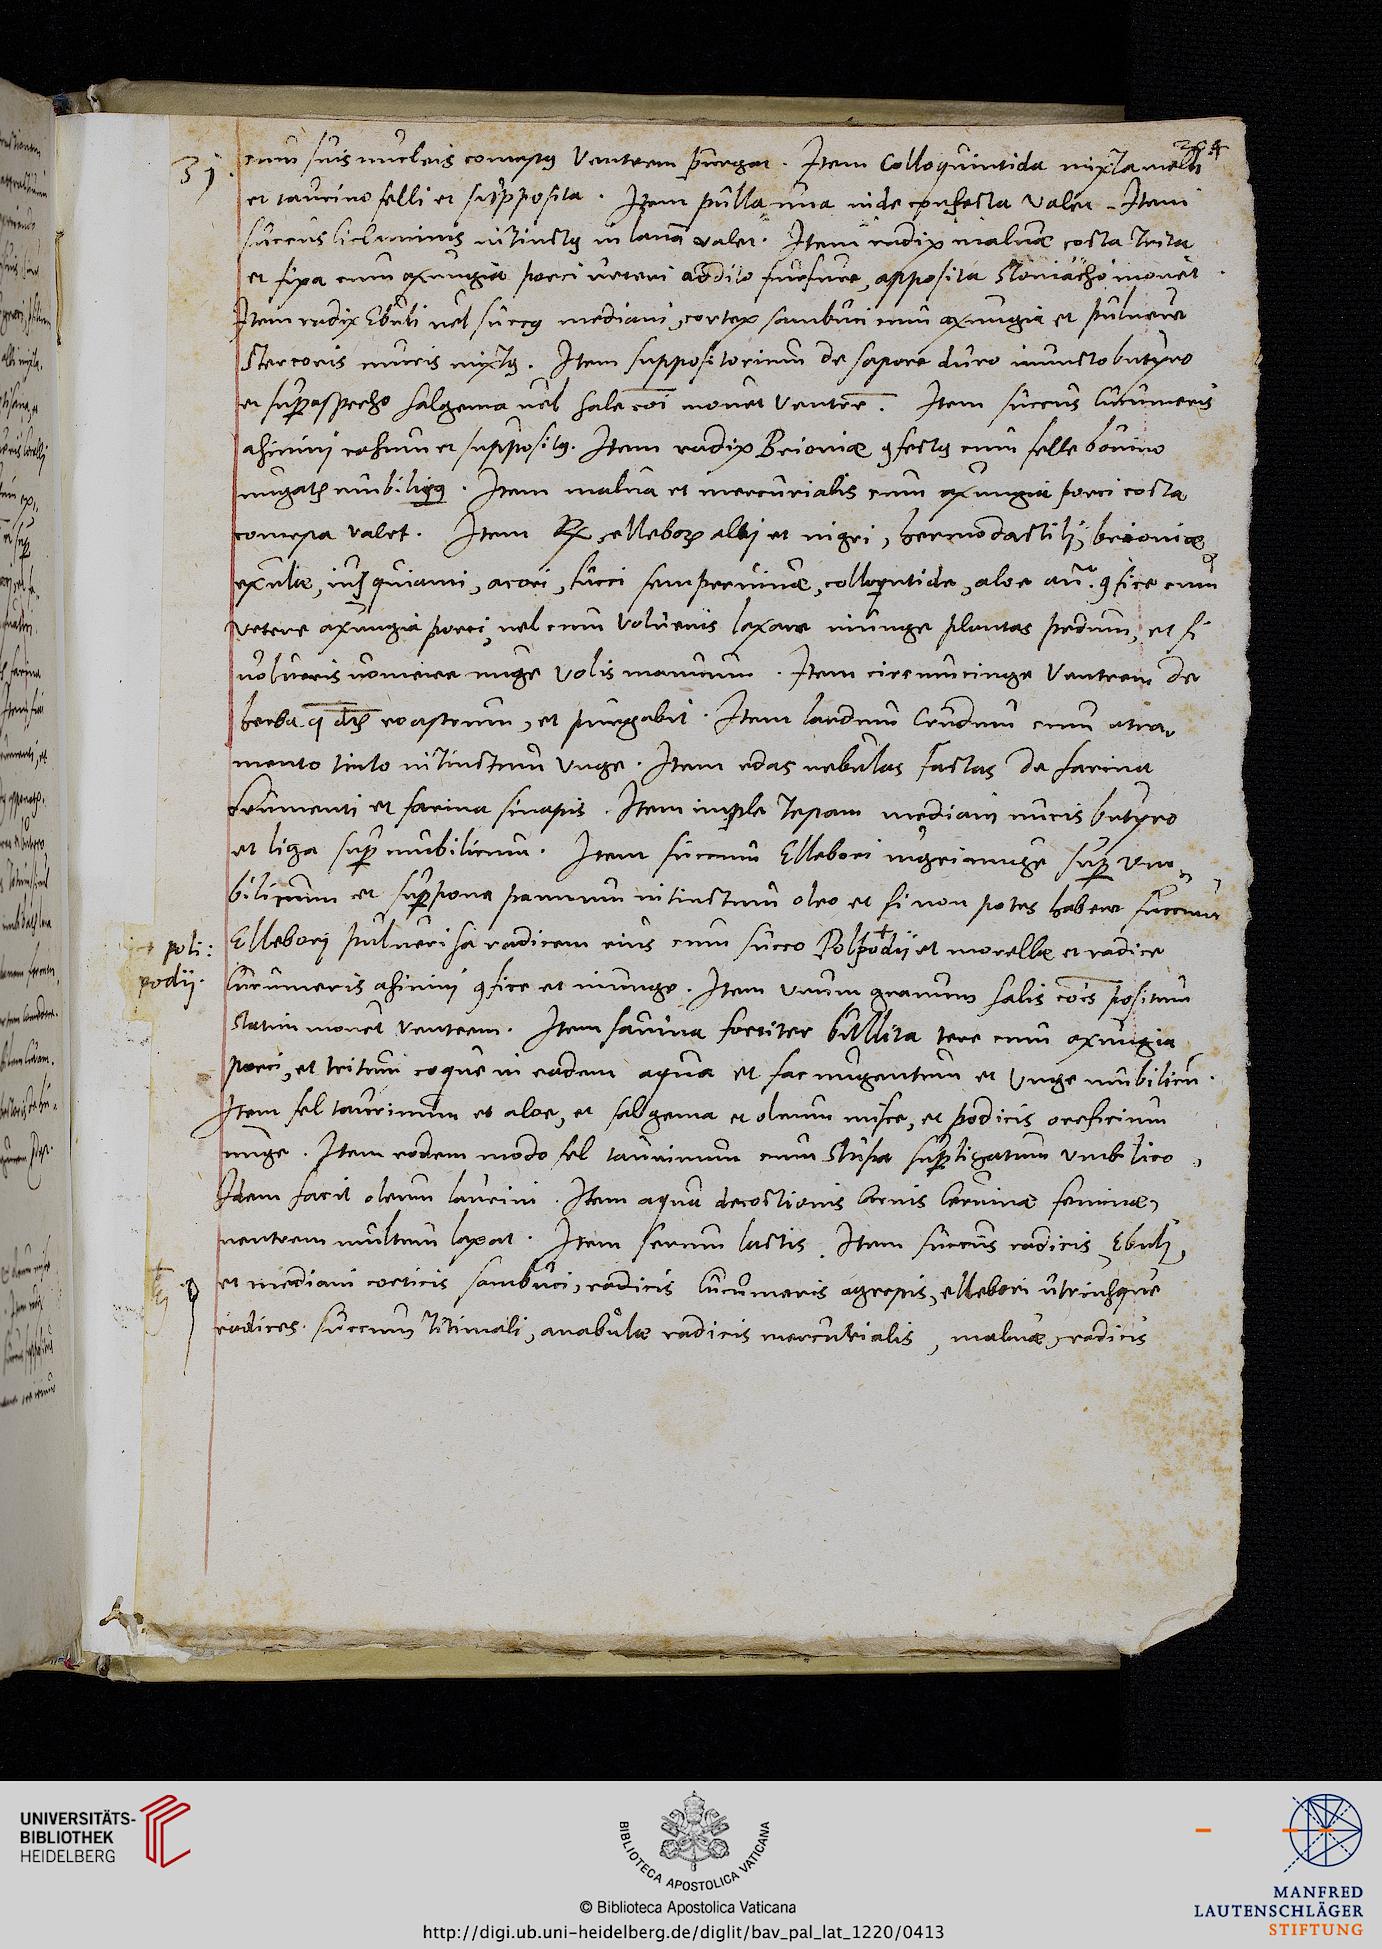 31.
cum suis nucleis comestꝰ Ventrem purgat. Item Colloquintida mixta melli
et taurino felli et supposita. Item pulla una inde confecta valet. Item
succus intinctꝰ in lana valet. Item radix malvæ cocta trita
et fixa cum axungia porci veteri addito furfure, apposita stomacho movet.
Item radix Ebuli vel succꝰ mediani, cortex sambuci cum axungia et pulvere
stercoris muris mixtꝰ. Item suppositorium de sapone duro inuncto butyro
et suꝑasperso salgema vel sale coi movet Ventrē. Item succus Cucumeris
asinini et suppositꝰ. Item radix Brioniæ ꝯfectꝰ cum felle bovino
umbilicꝰ. Item malva et mercurialis cum axungia porci cocta
comesta valet. Item ℞ elleboꝝ albi et nigri, hermodactili, brioniæ
exulæ, iusquiami, acori, succi semperuivæ, colloquintide, aloe an̄. ꝯfice cum
vetere axungia porci, vel cum volueris laxare inunge plantas pedum, et si
volueris vomere unge volis manuum. Item circumcinge Ventrem de
herba q̄ dr̄ roastrum, et purgabit. Item lardum Crudum cum atra-
mento tinto intinctum Unge. Item edas nebulas factas de farina
frumenti et farina sinapis. Item imple Testam mediam nucis butyro
et liga suꝑ umbilicum. Item succum Ellebori nigri unge suꝑ Um-
bilicum et suꝑpone pannum intinctum oleo et si non potes habere succum
Ellebori pulverisa radicem eius cum succo Polpodii et morellæ et radice
poli:
podii.
Cucumeris asinini ꝯfice et inunge. Item Unum granum salis cois positum
statim movet ventrem. Item savina fortiter bullita tere cum axungia
porci, et tritum coque in eadem aqua et fac ungentum et Unge umbilicū.
Item fel taurinum et aloe, et salgema et oleum misce, et podicis oreficium
unge. Item eodem modo fel taurinum cum stupa suꝑligatum umbilico,
Idem facit oleum laurini. Item aqua decoctionis carnis cervinæ feminæ,
ventrem multum laxat. Item serum lactis. Item succus radicis Ebuli,
et mediani corticis sambuci, radicis Cucumeris agrestis, ellebori utriusque
radices. succum Titimali, anabulæ radicis mercurialis, malvæ, radicis
UNIVERSITÄTS-
BIBLIOTHEK
HEIDELBERG
BIBLIOTECA APOSTOLICA VATICANA
© Biblioteca Apostolica Vaticana
http://digi.ub.uni-heidelberg.de/diglit/bav_pal_lat_1220/0413
MANFRED
LAUTENSCHLÄGER
STIFTUNG